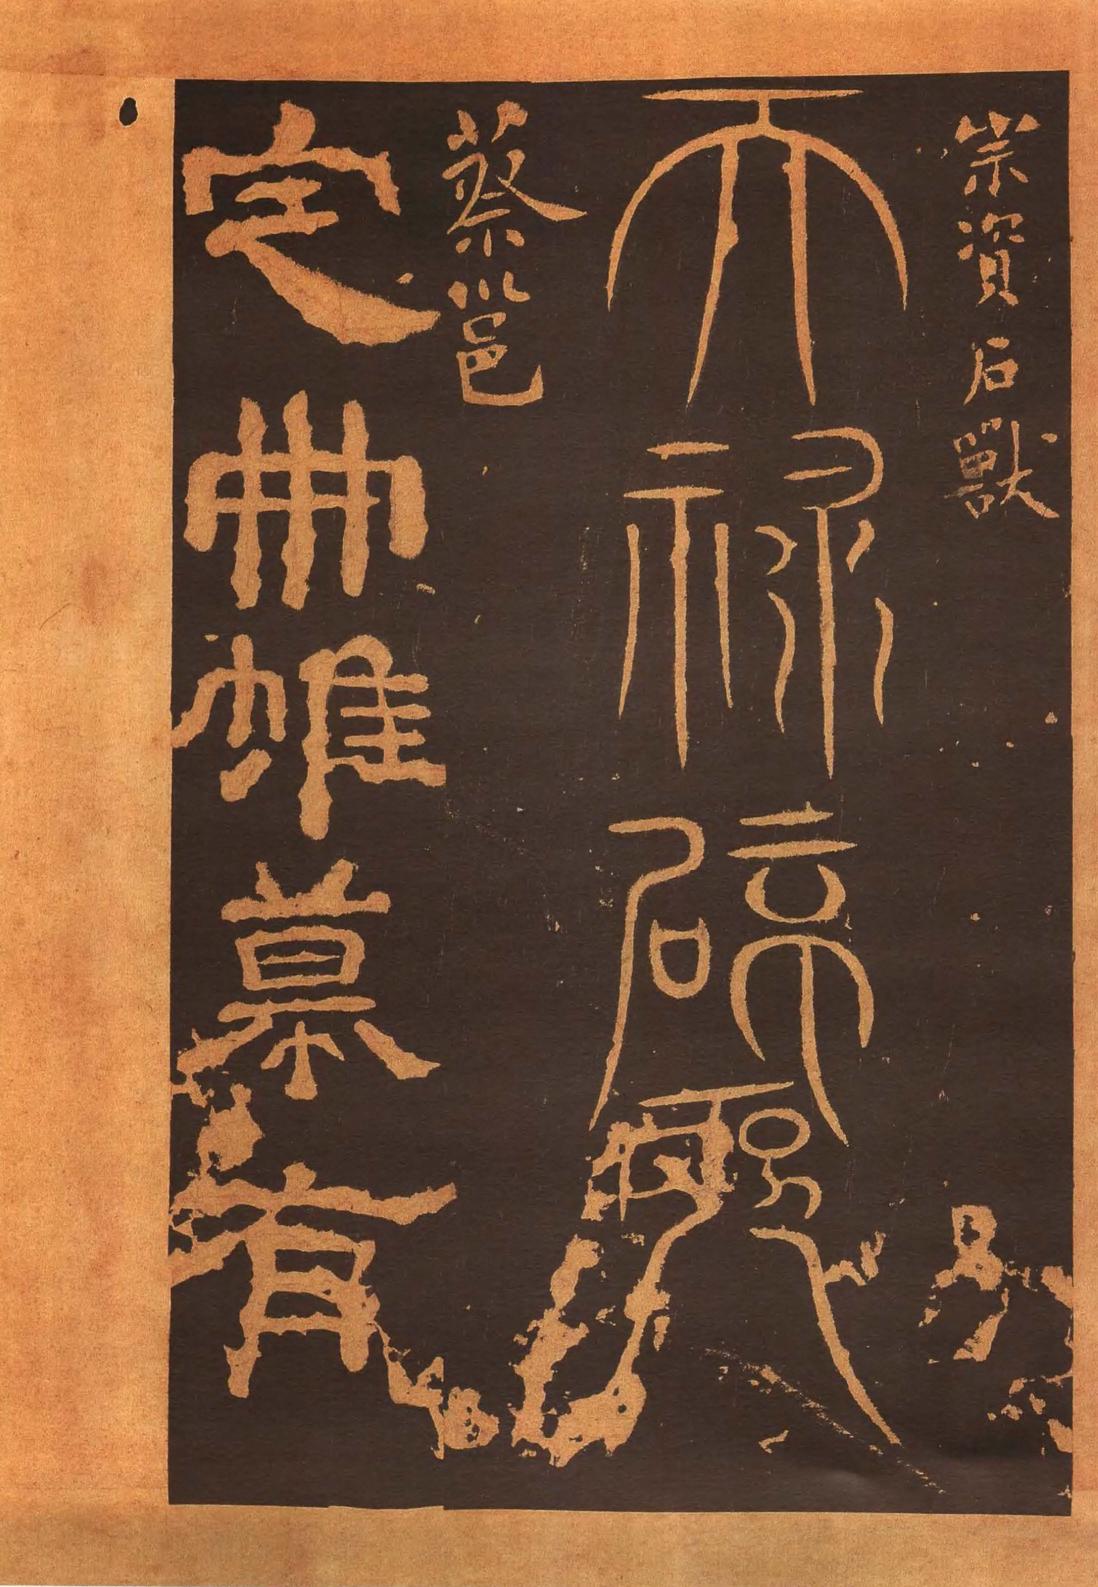 宗資石獸
天祿辟邪
蔡邕
定冊帷幕有